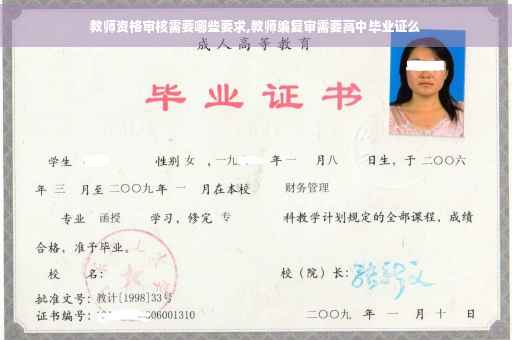 教师资格审核需要哪些要求,教师编复审需要高中毕业证么
成人高等教育
毕业证书
学生 性别 女 ,一九 年 一 月八 日生，于 二〇〇六
年 三 月至二〇〇九年 一 月在本校 财务管理
专业 函授 学习，修完 专 科教学计划规定的全部课程，成绩
合格，准予毕业。
校 名： 校（院）长：
批准文号：教计[1998]33号
证书编号： 06001310 二〇〇九 年 一 月 十 日